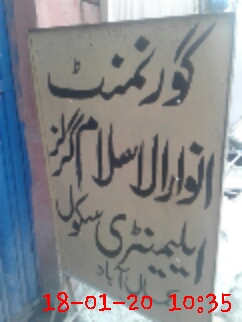 گورنمنٹ
انوارالاسلام گرلز
ایلیمنٹری سکول
آباد
18-01-20 10:35